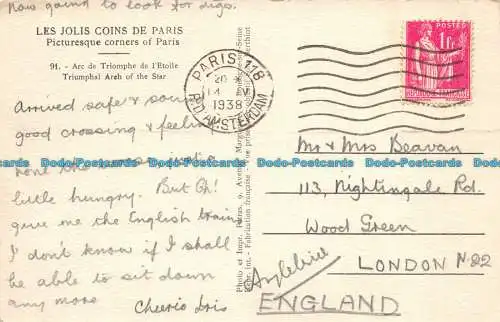 now going to look for digs.
LES JOLIS COINS DE PARIS
Picturesque corners of Paris
91. - Arc de Triomphe de l'Etoile
Triumphal Arch of the Star
Arrived safe & sound
good crossing & feeling
none the worse
little hungry. But Oh!
give me the English trains
I don't know if I shall
be able to sit down
any more
Cheerio Iris
PARIS 118
20
14
1938
R. D'AMSTERDAM
POSTES
1F
Mr & Mrs Beavan
113, Nightingale Rd.
Wood Green
LONDON N.22
ENGLAND
Angleterre
Bcdo-Postcards Bcdo-Postcards Bcdo-Postcards Bcdo-Postcards